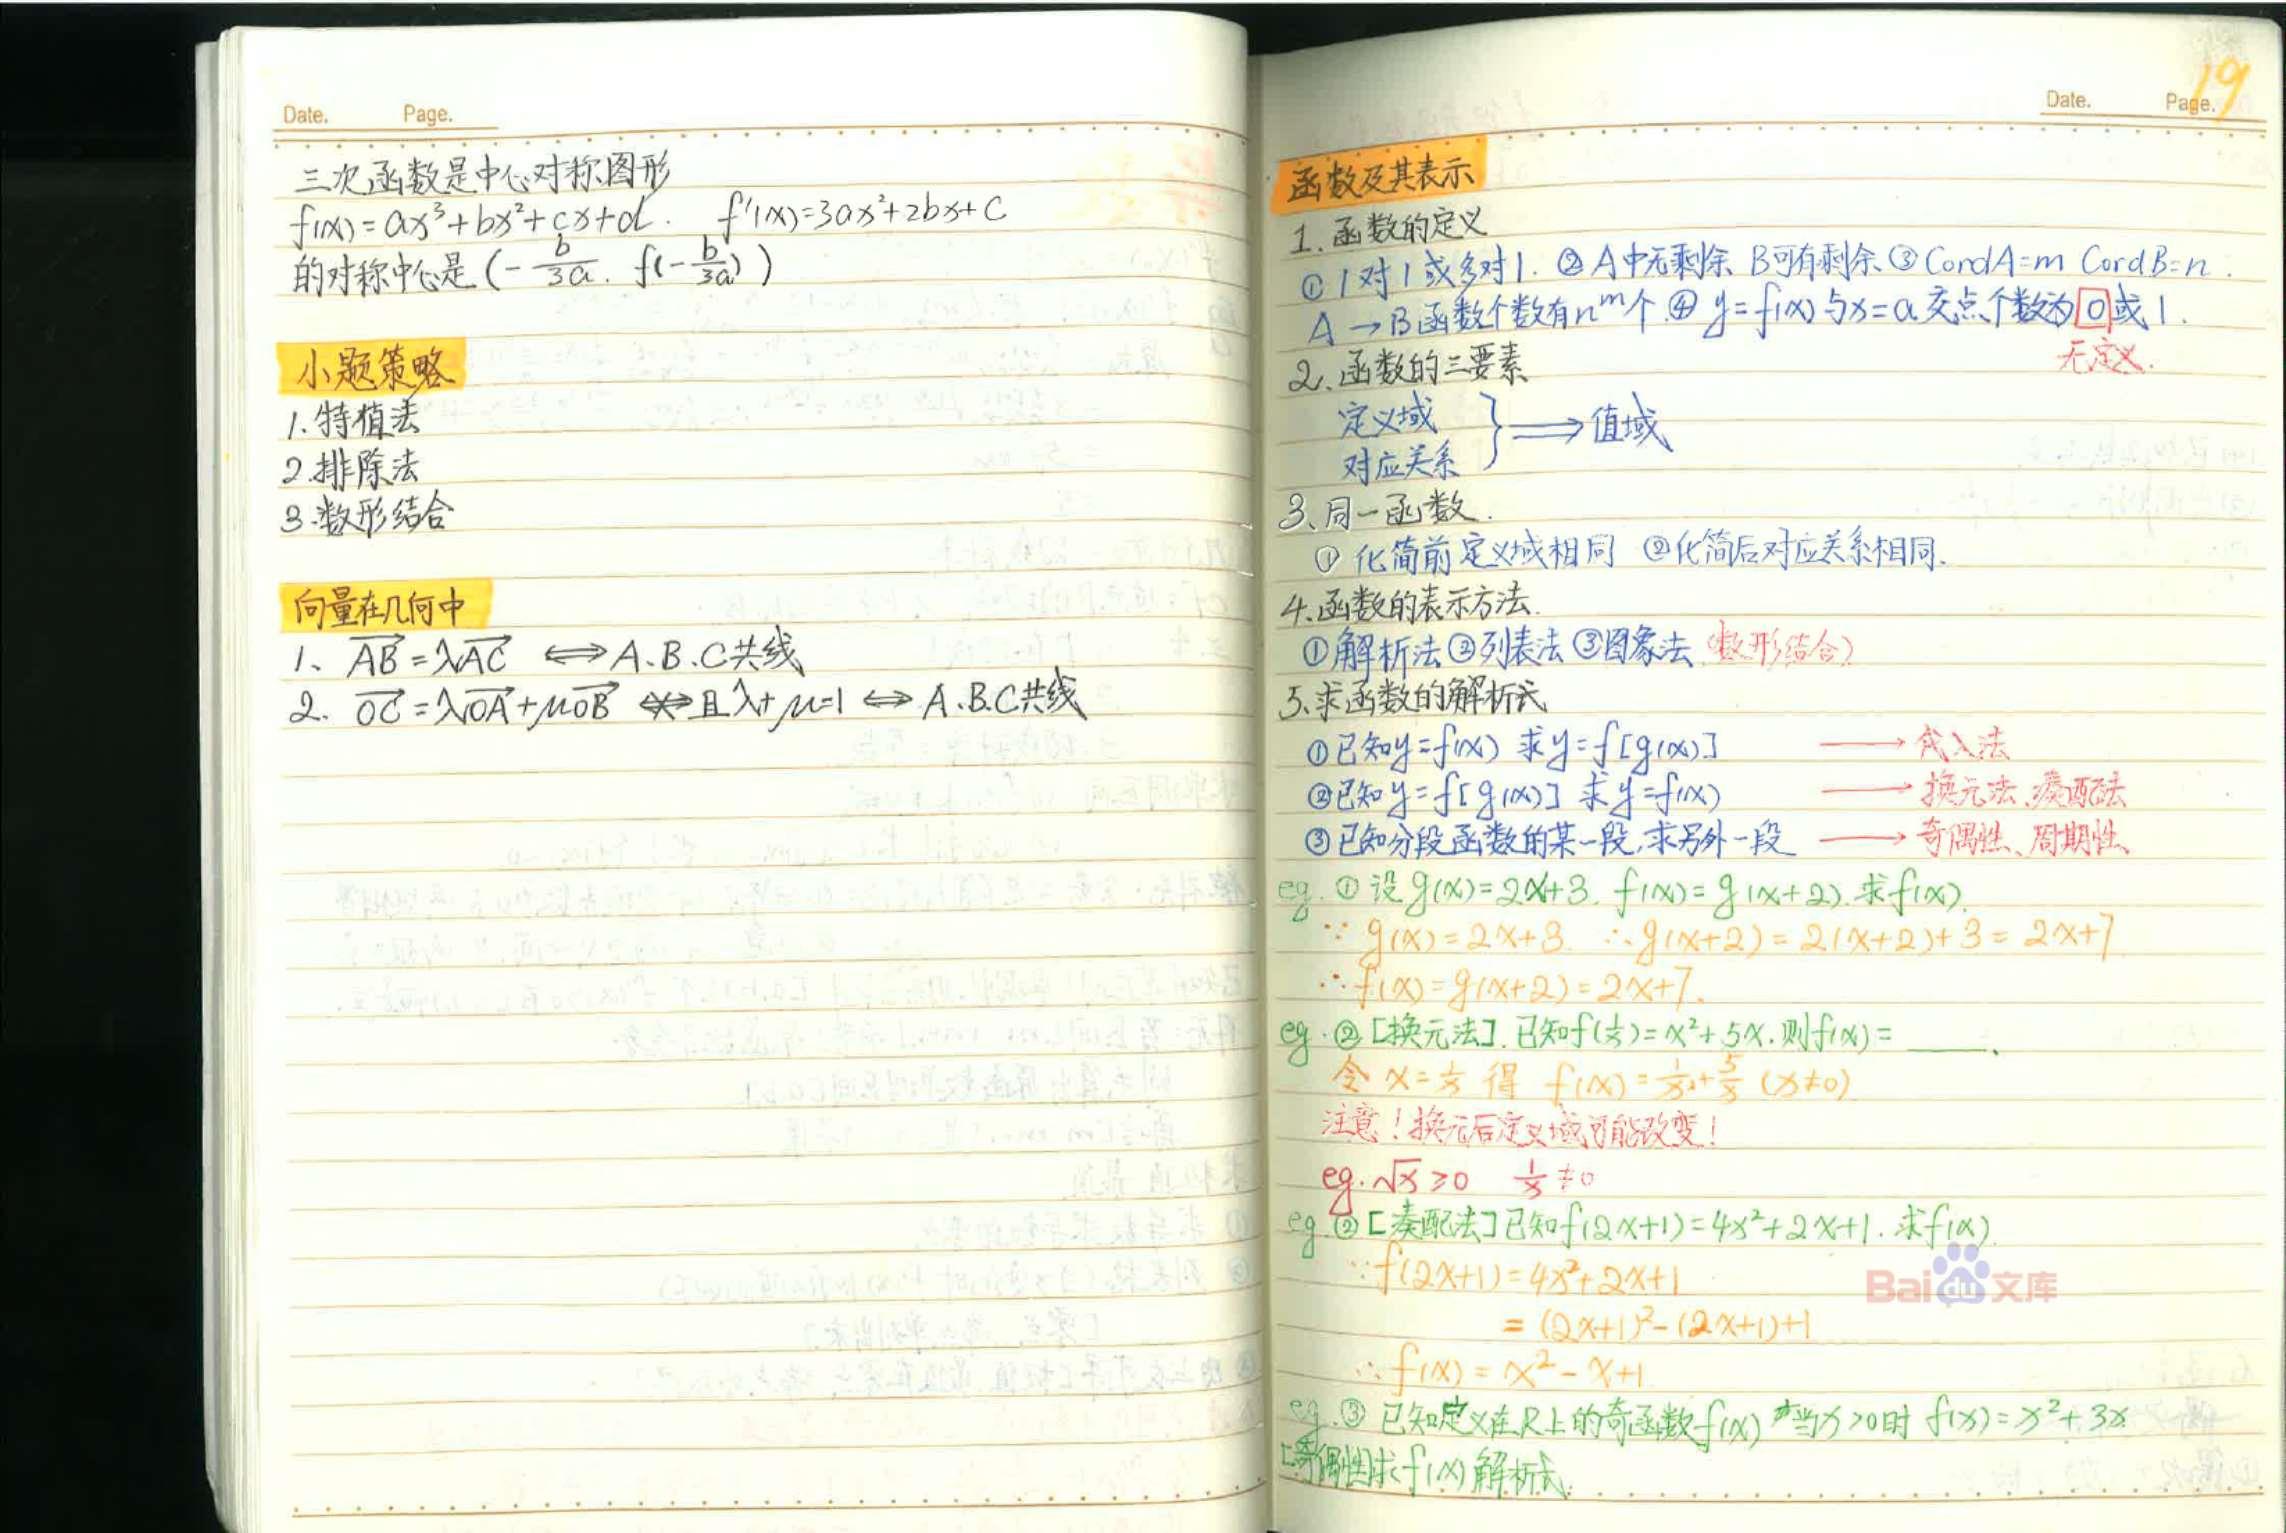 Date. Page.
三次函数是中心对称图形
f(x)=ax³+bx²+cx+d. f'(x)=3ax²+2bx+c
的对称中心是(-b/3a. f(-b/3a))
小题策略
1.特值法
2.排除法
3.数形结合
向量在几何中
1、AB=λAC ⟺A.B.C共线
2. OC=λOA+μOB 且λ+μ=1 ⟺ A.B.C共线
19
Date. Page.
函数及其表示
1.函数的定义
①1对1或多对1. ②A中无剩余 B可有剩余③CardA=m CardB=n.
A→B函数个数有n^m个.④y=f(x)与x=a交点个数为0或1.
无定义.
2.函数的三要素
定义域
对应关系 } ⟹ 值域
3、同一函数.
① 化简前定义域相同 ②化简后对应关系相同.
4.函数的表示方法.
①解析法②列表法③图象法(数形结合)
5.求函数的解析式
①已知y=f(x) 求y=f[g(x)] ⟶ 代入法
②已知y=f[g(x)] 求y=f(x) ⟶ 换元法、凑配法
③已知分段函数的某一段,求另外一段 ⟶ 奇偶性、周期性、
eg.①设g(x)=2x+3. f(x)=g(x+2).求f(x).
∵g(x)=2x+3. ∴g(x+2)=2(x+2)+3=2x+7
∴f(x)=g(x+2)=2x+7.
eg.②[换元法].已知f(1/x)=x²+5x.则f(x)=____.
令x=1/x 得 f(x)=1/x²+5/x (x≠0)
注意!换元后定义域可能改变!
eg.√x≥0 1/x≠0
eg.②[凑配法]已知f(2x+1)=4x²+2x+1.求f(x).
∵f(2x+1)=4x²+2x+1
=(2x+1)²-(2x+1)+1
∴f(x)=x²-x+1
eg.③已知定义在R上的奇函数f(x) 当x>0时 f(x)=x²+3x
[奇偶性]求f(x)解析式.
Bai du 文库